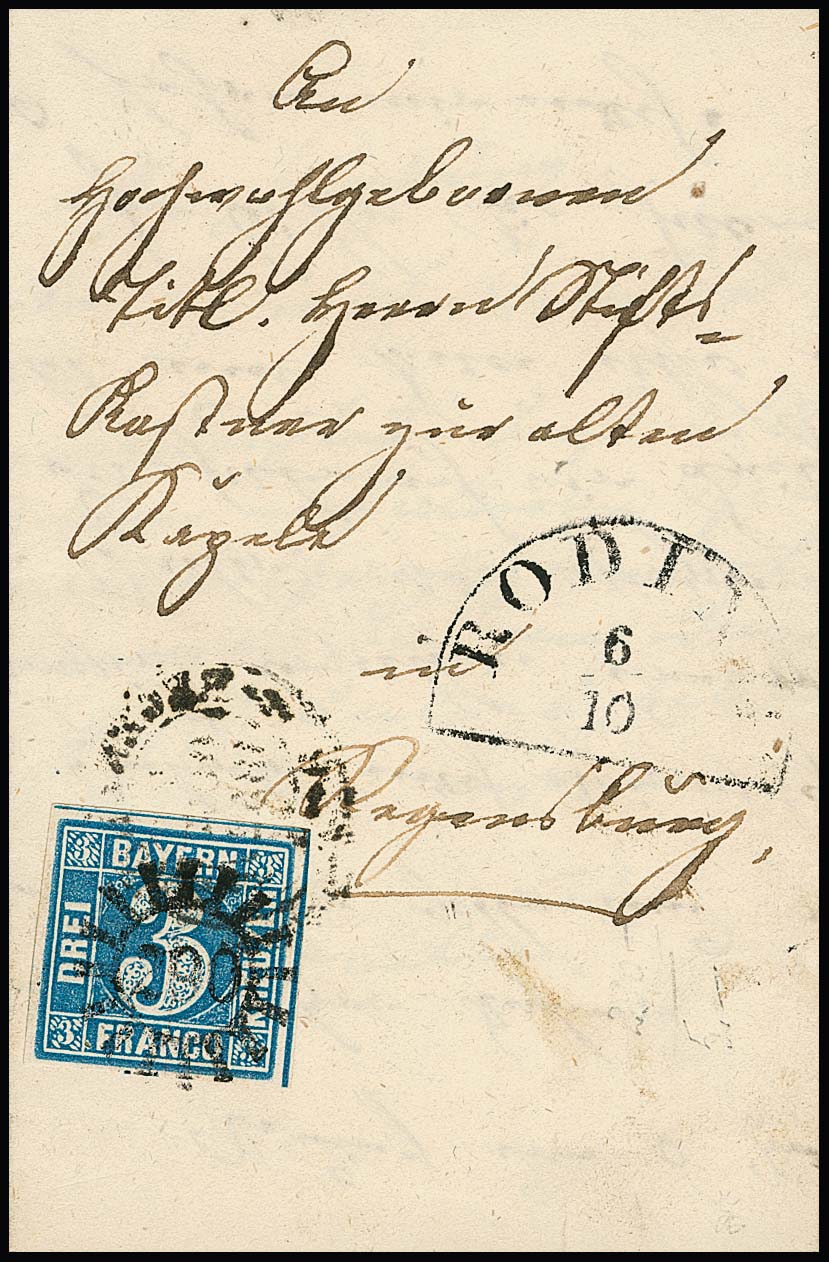 An
Hochwohlgebornen
Titl. Herrn Stifts-
Kastner zur alten
Kapele
in
Regensburg.
RODING
6
10
BAYERN
DREI
3
KREUZER
FRANCO
3
3
3
3